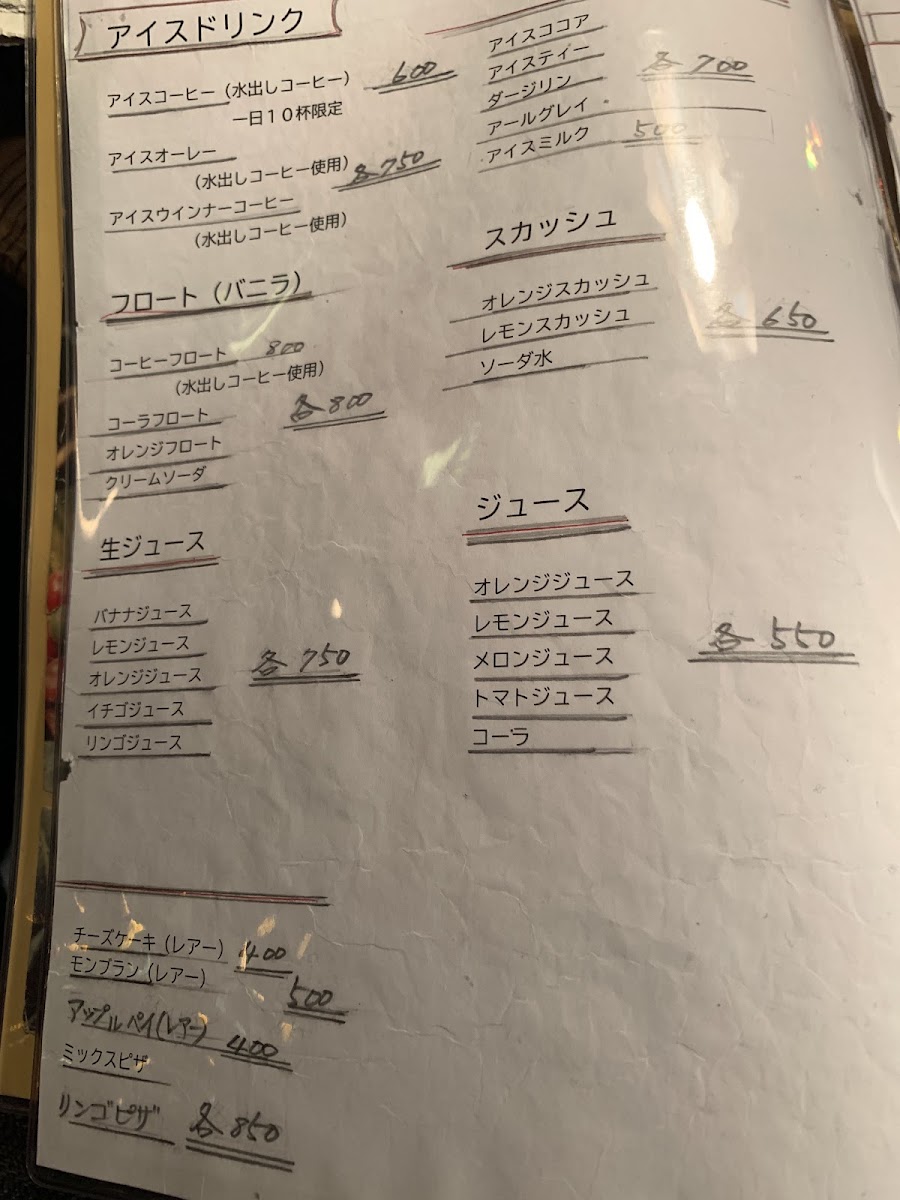 アイスドリンク
アイスコーヒー（水出しコーヒー） 600
一日１０杯限定
アイスオーレー
（水出しコーヒー使用） 各750
アイスウインナーコーヒー
（水出しコーヒー使用）
フロート（バニラ）
コーヒーフロート 800
（水出しコーヒー使用）
コーラフロート 各800
オレンジフロート
クリームソーダ
生ジュース
バナナジュース
レモンジュース
オレンジジュース 各750
イチゴジュース
リンゴジュース
チーズケーキ（レアー） 400
モンブラン（レアー） 500
アップルペイ（レアー） 400
ミックスピザ
リンゴピザ 各850
アイスココア
アイスティー 各700
ダージリン
アールグレイ
アイスミルク 500
スカッシュ
オレンジスカッシュ
レモンスカッシュ 各650
ソーダ水
ジュース
オレンジジュース
レモンジュース 各550
メロンジュース
トマトジュース
コーラ